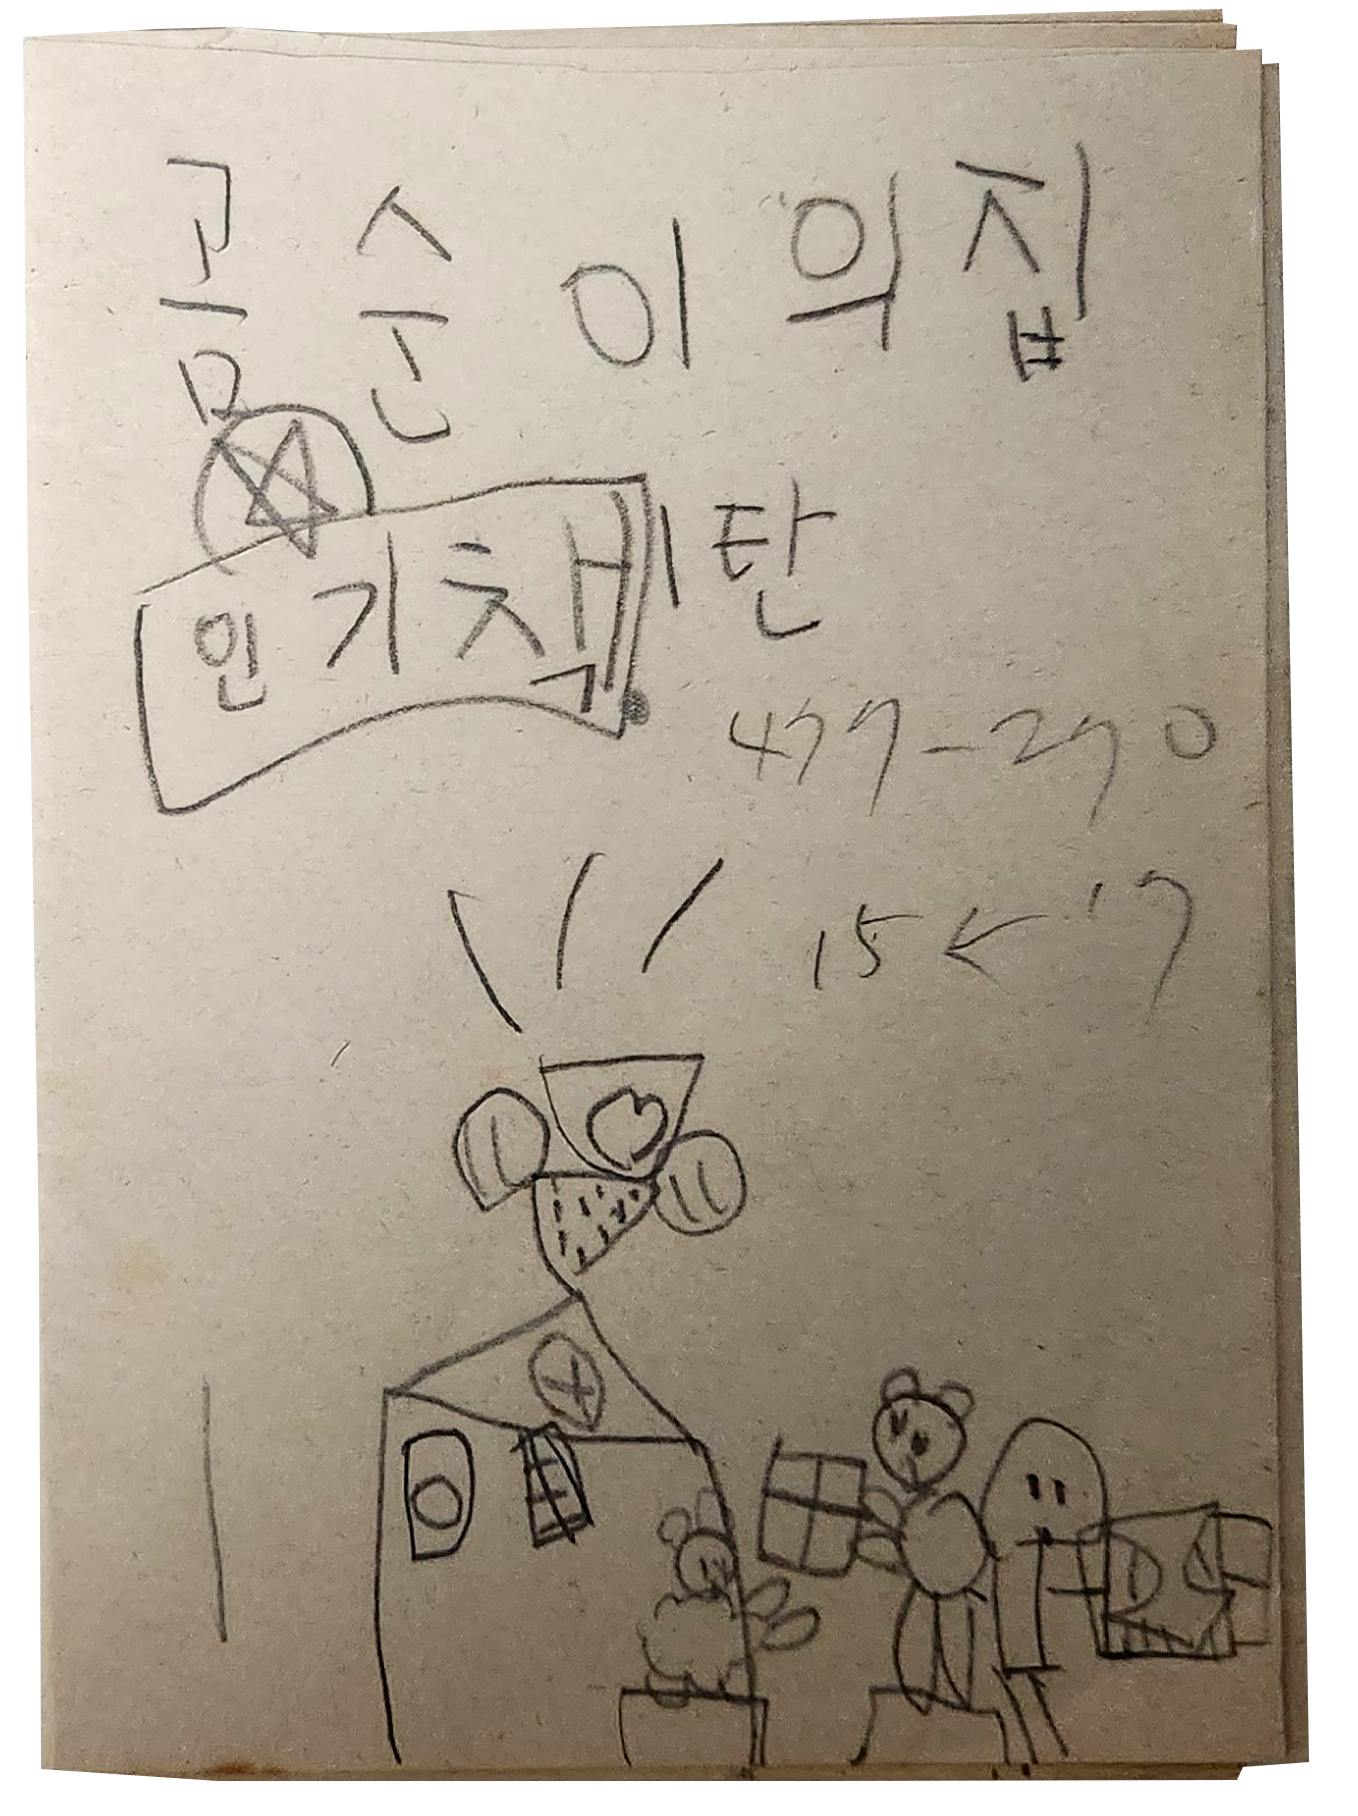 곰순이의집
인기책 1탄
477-270
15 ← '7